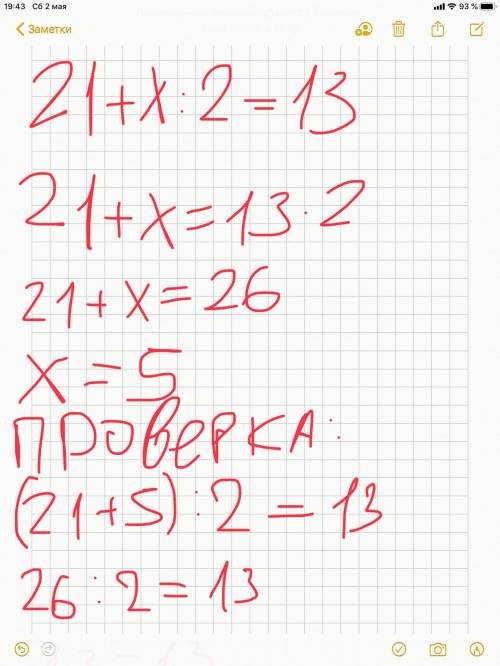 19:43 Сб 2 мая 93 %
Заметки
21+x:2=13
21+x=13·2
21+x=26
x=5
ПРОВЕРКА:
(21+5):2=13
26:2=13